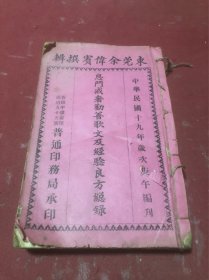 東莞余偉賓撰輯
中華民國十九年歲次庚午編刊
息鬥戒奢勸善歌文及經驗良方總錄
普通印務局承印